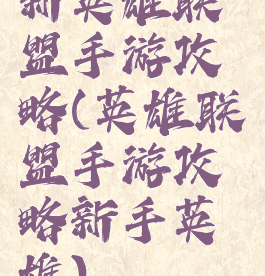 新英雄联
盟手游攻
略(英雄联
盟手游攻
略新手英
雄)